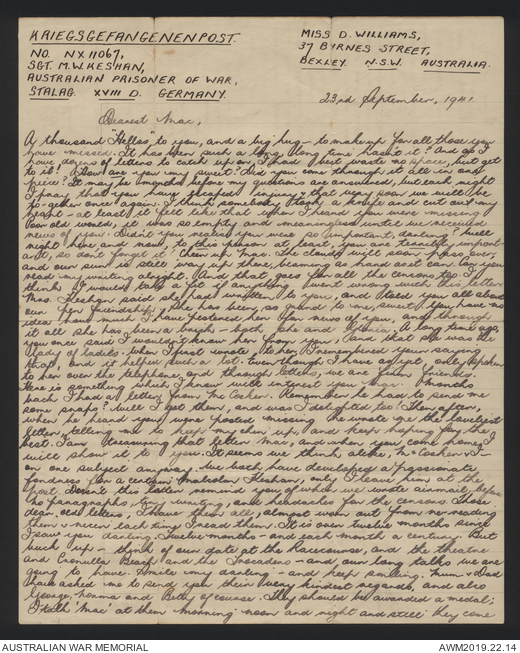 KRIEGSGEFANGENENPOST.
NO. NX11067,
SGT. M.W. KESHAN,
AUSTRALIAN PRISONER OF WAR,
STALAG XVIII D. GERMANY.
MISS D. WILLIAMS,
37 BYRNES STREET,
BEXLEY. N.S.W. AUSTRALIA.
23rd September, 1941
Dearest Mac,
A thousand "Hellos" to you, and a big hug - to make up for all those you
have missed. It has been such a long, long time, hasn't it? And as I
have dozens of letters to catch up on, I had best waste no space, but get
to it! How are you my sweet? Did you come through it all in one
piece? It may be months before my questions are answered, but each night
I pray that you have escaped injury & that very soon we will be
to-gether once again. I think somebody took a knife and cut out my
heart - at least it felt like that when I heard you were missing.
Poor old world, it was so empty, and meaningless until we received
news of you. Didn't you realise you were so important darling? Well
right here and now, to this person at least, you are terribly import-
ant, so don't forget it! Cheer up Mac. The clouds will soon pass over,
and our sun is still way up there, beaming as hard as it can. Can you
read my writing alright. And that goes for all the censors too! I
think I would take a fit if anything went wrong with this letter.
Mrs. Keshan said she had written to you, and told you all about
our pen friendship. She has been so grand to me, sweet. You have no
idea how much I have pestered her for news of you, and through
it all she has been a brick - both she and A long time ago,
you once said I wouldn't know her from you, and that she was the
lady of ladies. When I first wrote to her I remembered your saying
that, and it helped such a lot. Even though I have as yet, only spoken
to her over the telephone, and through letters, we are firm friends.
Here is something which I know will interest you Mac. Months
back I had a letter from Mr Cosher. Remember he had to send me
some snaps? Well I got them, and was I delighted too! Then after,
when he heard you were posted missing, he wrote me the loveliest
letter, telling me to keep my chin up, and keep hoping for the
best. I am treasuring that letter Mac, and when you come home, I
will show it to you. It seems we think alike, Mr Cosher & I -
on one subject anyway. We both have developed a passionate
fondness for a certain Malcolm Keshan, only I leave him at the
post. Doesn't this letter remind you of when we wrote airmail, before
No paragraphs, tiny writing, and headaches for the censors. Those
dear, old letters. I have them all, almost worn out from re-reading
them & newer each time I read them. It is over twelve months since
I saw you darling. Twelve months - and each month a century. But
buck up - think of our date at the Racecourse, and the theatre
and Cronulla Beach and the Trocadero - and our long talks we are
going to have. Smile my darling - and keep smiling. Mum & Dad
have asked me to send you their very kindest regards, and also
George, Norma and Betty of course. They should be awarded a medal;
I talk 'Mac' at them morning noon and night and still they come
AUSTRALIAN WAR MEMORIAL
AWM2019.22.14